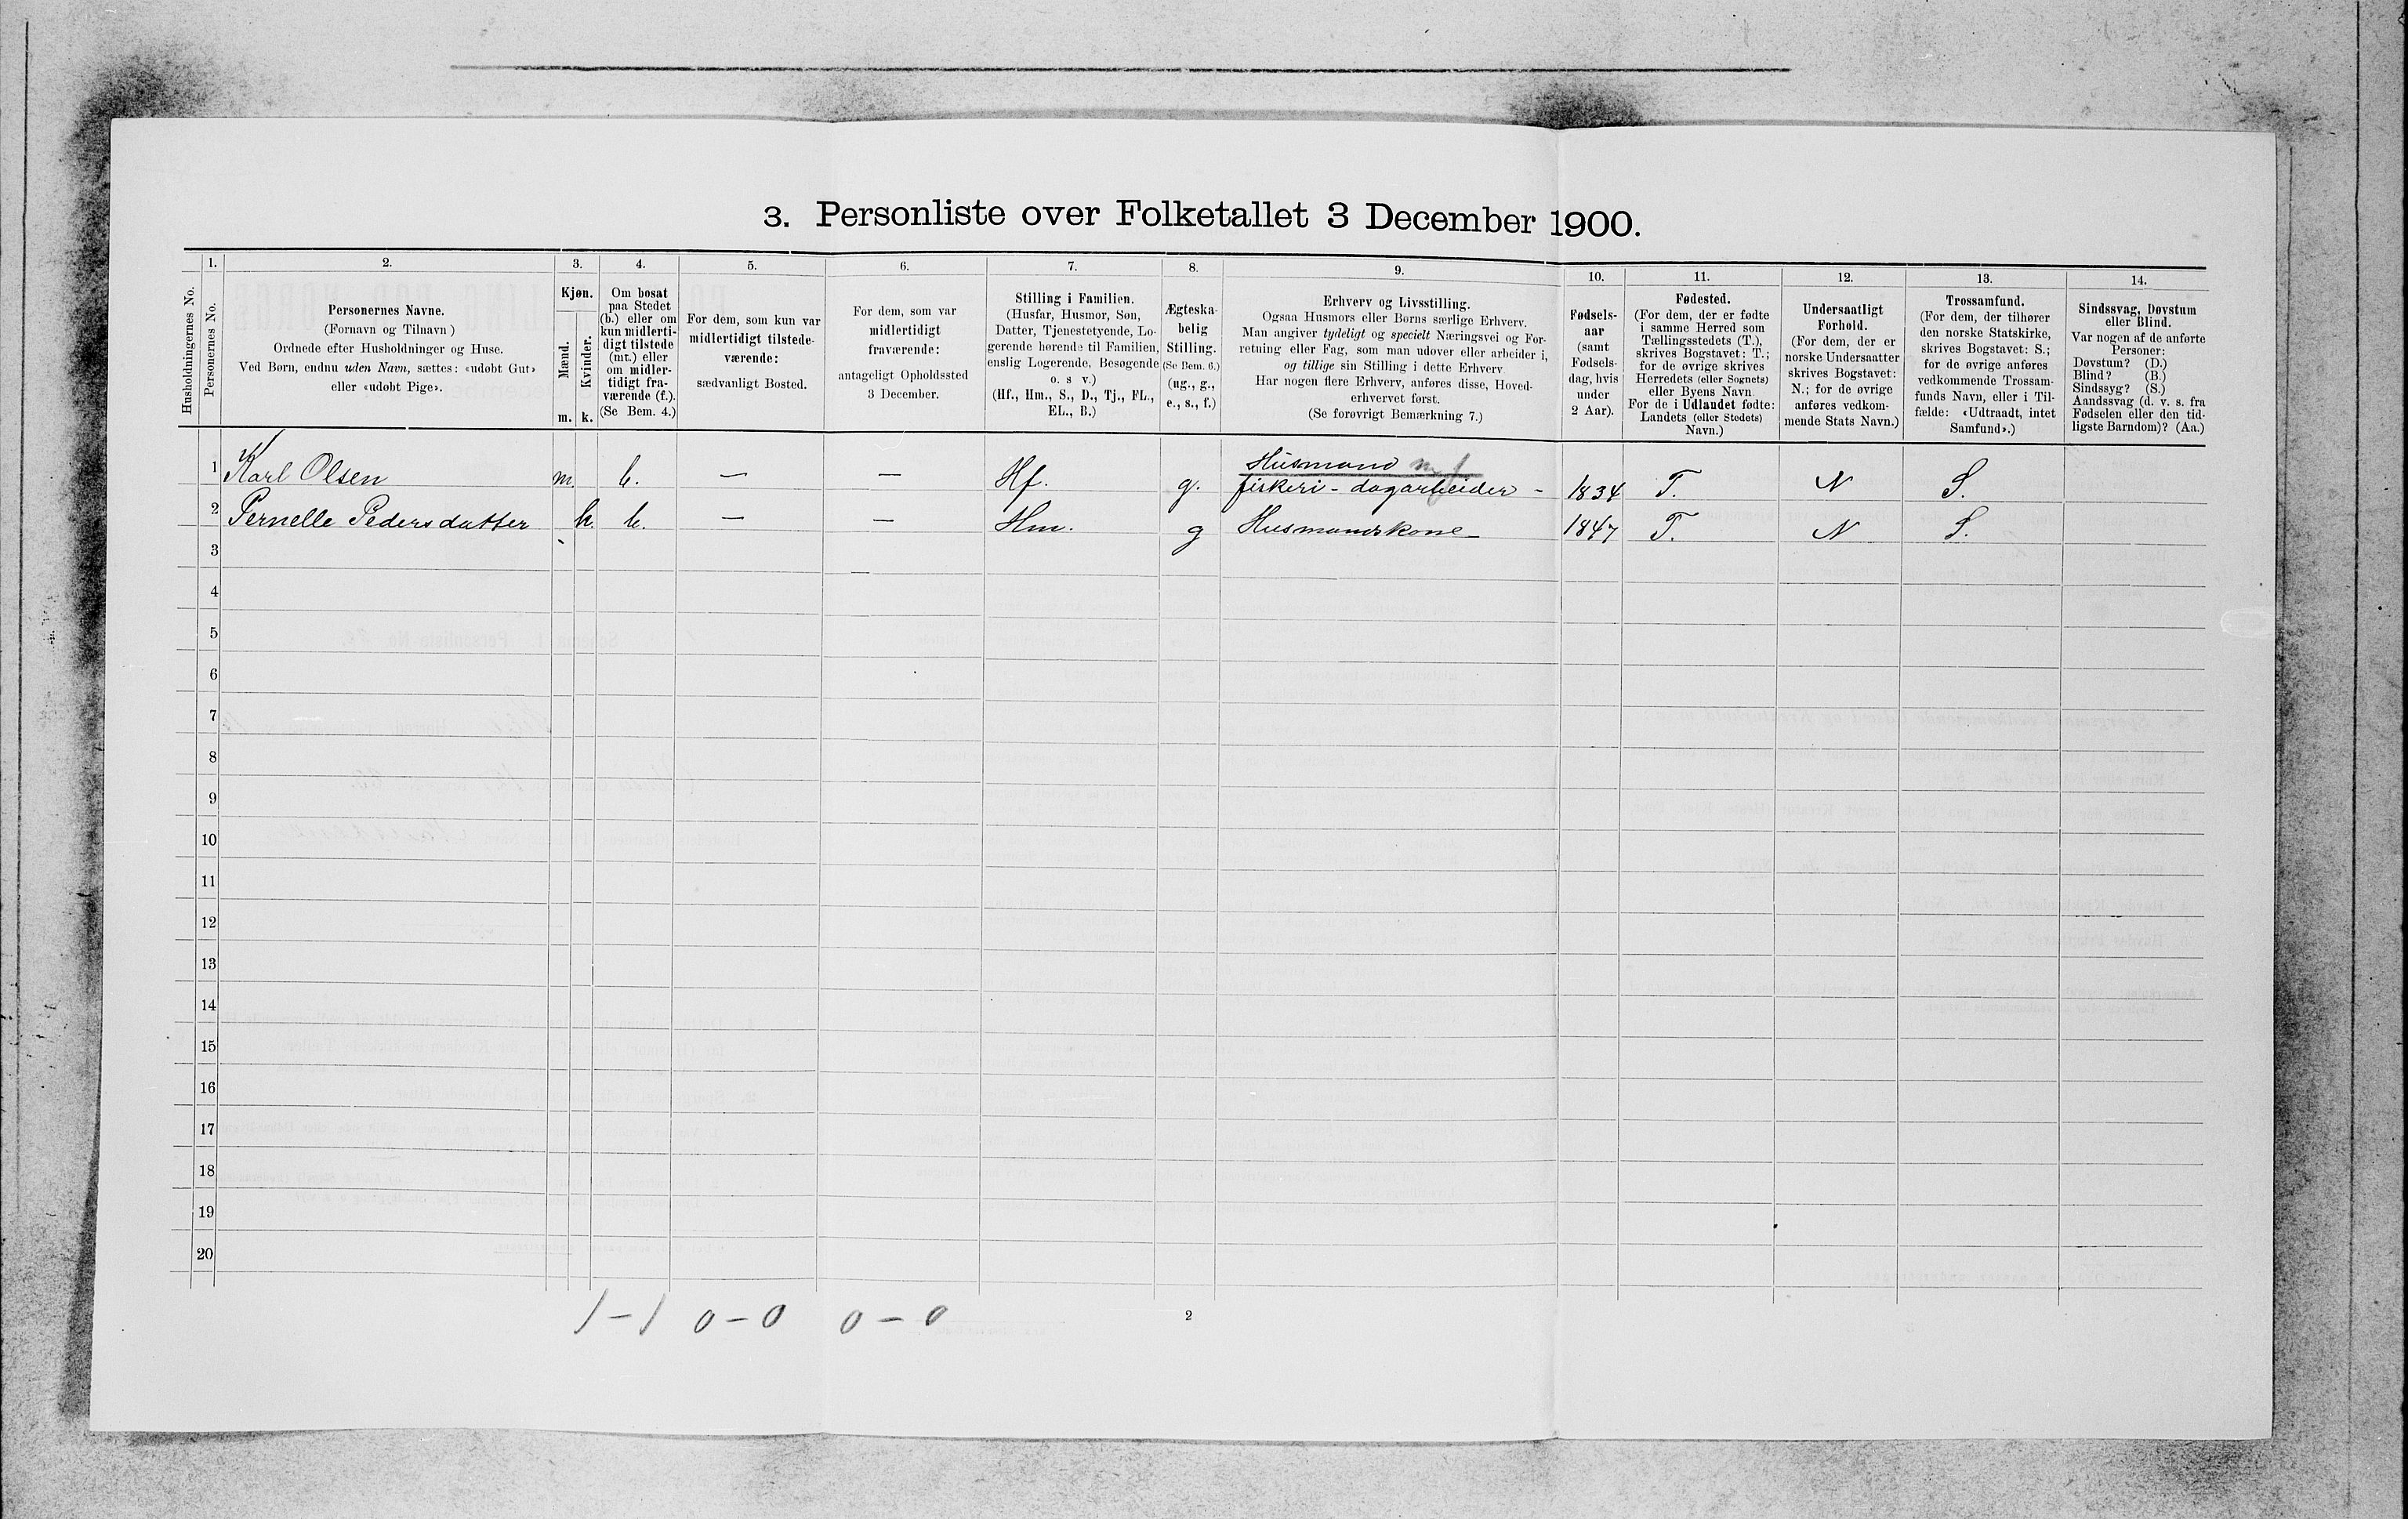 3. Personliste over Folketallet 3 December 1900.
Husholdningernes No.
1.
Personernes No.
2.
Personernes Navne.
(Fornavn og Tilnavn)
Ordnede efter Husholdninger og Huse.
Ved Børn, endnu uden Navn, sættes: «udøbt Gut»
eller «udøbt Pige».
3.
Kjøn.
Mænd.
Kvinder.
m. k.
4.
Om bosat
paa Stedet
(b.) eller om
kun midlerti-
digt tilstede
(mt.) eller
om midler-
tidigt fra-
værende (f.).
(Se Bem. 4.)
5.
For dem, som kun var
midlertidigt tilstede-
værende:
sædvanligt Bosted.
6.
For dem, som var
midlertidigt
fraværende:
antageligt Opholdssted
3 December.
7.
Stilling i Familien.
(Husfar, Husmor, Søn,
Datter, Tjenestetyende, Lo-
gerende hørende til Familien,
enslig Logerende, Besøgende
o. s v.)
(Hf., Hm., S., D., Tj., FL.,
EL., B.)
8.
Ægteska-
belig
Stilling.
(Se Bem. 6.)
(ug., g.,
e., s., f.)
9.
Erhverv og Livsstilling.
Ogsaa Husmors eller Børns særlige Erhverv.
Man angiver tydeligt og specielt Næringsvei og For-
retning eller Fag, som man udøver eller arbeider i,
og tillige sin Stilling i dette Erhverv
Har nogen flere Erhverv, anføres disse, Hoved-
erhvervet først.
(Se forøvrigt Bemærkning 7.)
10.
Fødsels-
aar
(samt
Fødsels-
dag, hvis
under
2 Aar).
11.
Fødested.
(For dem, der er fødte
i samme Herred som
Tællingsstedets (T.),
skrives Bogstavet: T.;
for de øvrige skrives
Herredets (eller Sognets)
eller Byens Navn
For de i Udlandet fødte:
Landets (eller Stedets)
Navn.)
12.
Undersaatligt
Forhold.
(For dem, der er
norske Undersaatter
skrives Bogstavet:
N.; for de øvrige
anføres vedkom-
mende Stats Navn.)
13.
Trossamfund.
(For dem, der tilhører
den norske Statskirke,
skrives Bogstavet: S.;
for de øvrige anføres
vedkommende Trossam-
funds Navn, eller i Til-
fælde: «Udtraadt, intet
Samfund».)
14.
Sindssvag, Døvstum
eller Blind.
Var nogen af de anførte
Personer:
Døvstum? (D.)
Blind? (B.)
Sindssyg? (S.)
Aandssvag (d. v. s. fra
Fødselen eller den tid-
ligste Barndom)? (Aa.)
1 Karl Olsen m. b. — — Hf. g. Husmand m f
fiskeri - dagarbeider - 1834 T. N S.
2 Pernelle Pedersdatter k. b. — — Hm. g Husmandskone 1847 T. N S.
3
4
5
6
7
8
9
10
11
12
13
14
15
16
17
18
19
20
1 - 1 0 - 0 0 - 0
2